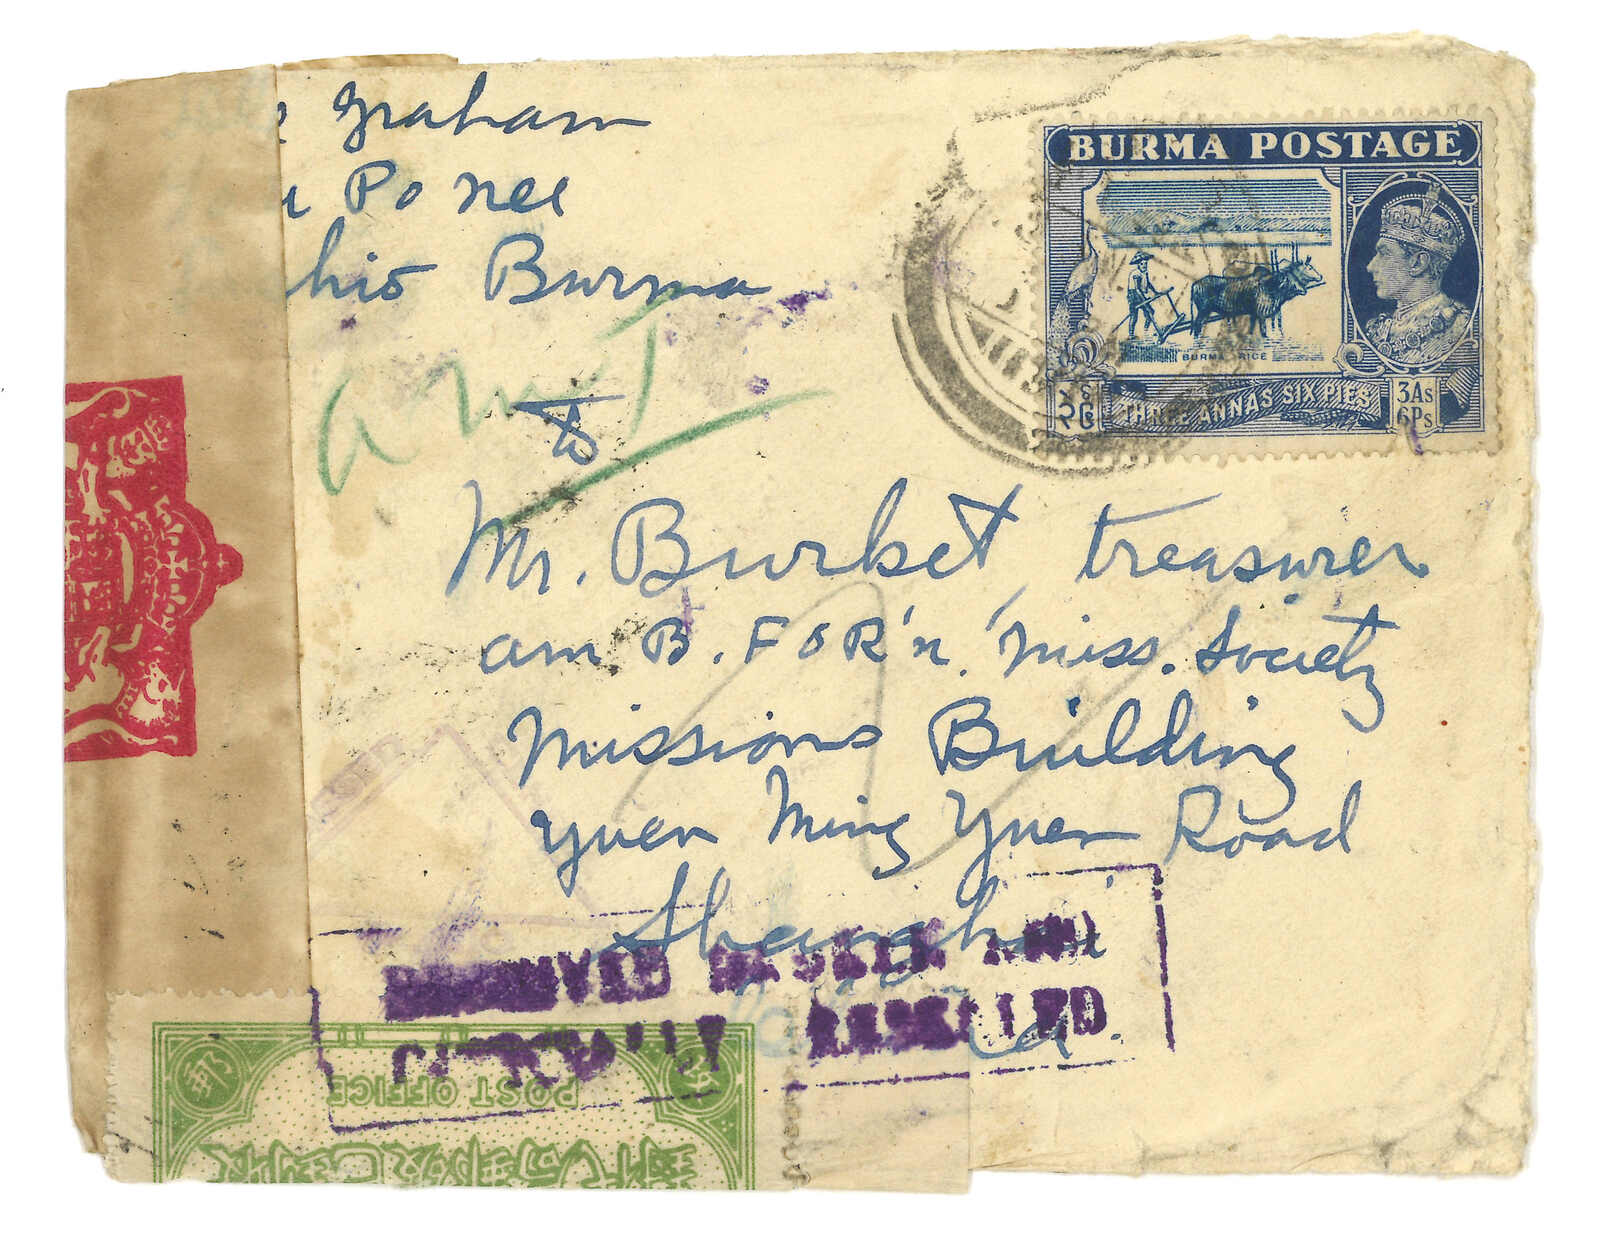 Graham
Po Nel
hio Burma
BURMA POSTAGE
BURMA RICE
THREE ANNAS SIX PIES
3As
6Ps
၃ၐ
Mr. Burket, treasurer
am B. FOR'n. Miss. Society
Missions Building
Yuen Ming Yuen Road
Shanghai
RECEIVED BROKEN AND
OFFICIALLY RESEALED
POST OFFICE
郵